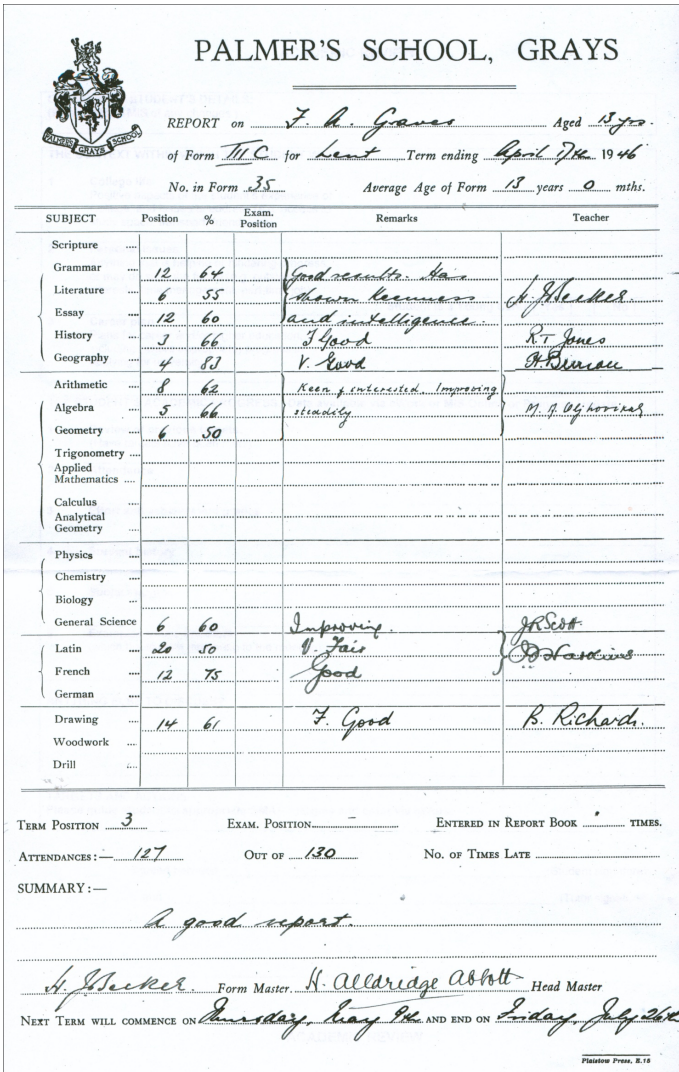 PALMER'S SCHOOL, GRAYS
PALMER'S GRAYS SCHOOL
REPORT on F. A. Graves Aged 13 yrs.
of Form III C for Lent Term ending April 7th 1946
No. in Form 35 Average Age of Form 13 years 0 mths.
SUBJECT Position % Exam. Position Remarks Teacher
Scripture ....
Grammar .... 12 64 Good results. Has
Literature .... 6 55 shown keenness H. J. Becker.
Essay .... 12 60 and intelligence.
History .... 3 66 F Good R T Jones
Geography .... 4 83 V. Good H.
Arithmetic .... 8 62 Keen & interested. Improving
Algebra .... 5 66 steadily M. A.
Geometry .... 6 50
Trigonometry ....
Applied
Mathematics ....
Calculus ....
Analytical
Geometry ....
Physics ....
Chemistry ....
Biology ....
General Science 6 60 Improving. J R Scott
Latin .... 20 50 V. Fair
French .... 12 75 Good
German ....
Drawing .... 14 61 F. Good B. Richards.
Woodwork ....
Drill ....
TERM POSITION 3 EXAM. POSITION - ENTERED IN REPORT BOOK TIMES.
ATTENDANCES:— 127 OUT OF 130 NO. OF TIMES LATE
SUMMARY:—
A good report.
H. J. Becker. Form Master. H. Alldridge Abbott Head Master
NEXT TERM WILL COMMENCE ON Thursday, May 9th AND END ON Friday, July 26th
Plaistow Press, E.15